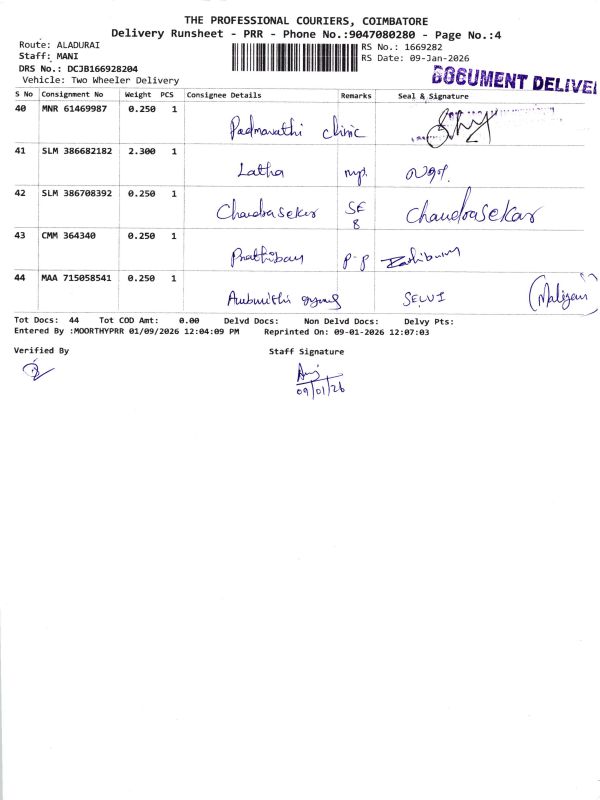 THE PROFESSIONAL COURIERS, COIMBATORE
Delivery Runsheet - PRR - Phone No.:9047080280 - Page No.:4
Route: ALADURAI
Staff: MANI
DRS No.: DCJB166928204
Vehicle: Two Wheeler Delivery
RS No.: 1669282
RS Date: 09-Jan-2026
DOCUMENT DELIVE
S No Consignment No Weight PCS Consignee Details Remarks Seal & Signature
40 MNR 61469987 0.250 1
Padmavathi Clinic
41 SLM 386682182 2.300 1
Latha
42 SLM 386708392 0.250 1
Chandrasekar SE 8 Chandrasekar
43 CMM 364340 0.250 1
P-P
44 MAA 715058541 0.250 1
SELVI
Tot Docs: 44 Tot COD Amt: 0.00 Delvd Docs: Non Delvd Docs: Delvy Pts:
Entered By :MOORTHYPRR 01/09/2026 12:04:09 PM Reprinted On: 09-01-2026 12:07:03
Verified By Staff Signature
09/01/26